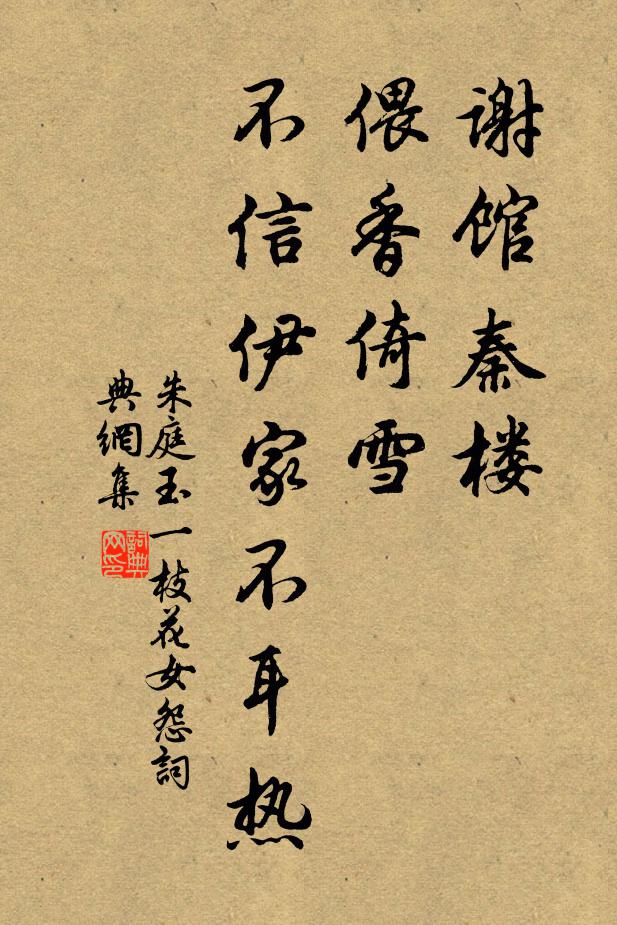 谢馆秦楼
偎香倚雪
不信伊家不耳热
朱庭玉一枝花女怨詞
典網集
詞典
网印